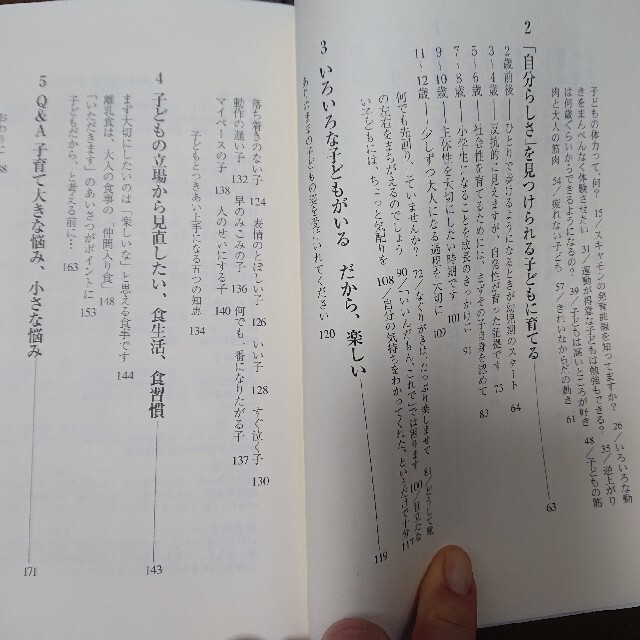 子どもの体力って、何？ 15／スキャモンの発育曲線を知ってますか？ 26／いろいろな動
きをまんべんなく体験させたい 31／運動が得意な子どもは勉強もできる？ 35／逆上がり
は何歳くらいからできるようになるの？ 39／子どもは高いところが好き 48／子どもの筋
肉と大人の筋肉 54／疲れない子ども 57／きれいなからだの動き 61
2 「自分らしさ」を見つけられる子どもに育てる 63
2歳前後――ひとり、で歩けるようになるときが幼児期のスタート 64
3～4歳――反抗的に見えますが、自発性が育った証拠です 73
5～6歳――社会性を育てるためには、まずその子自身を認めて 83
7～8歳――小学生になることを成長のきっかけに 91
9～10歳――主体性を大切にしたい時期です 101
11～12歳――少しずつ大人になる過程を大切に 109
何でも先回りしていませんか？ 72／なぐりがきは、たっぷり楽しませて 81／どうして靴
の左右をまちがえるのでしょう 90／「いいんだもん、これで」では困ります 100／
い子どもには、ちょっと気配りを 108／自分の気持ちをわかってくれた、というだけで十分 117
3 いろいろな子どもがいる だから、楽しい 119
ありのままの子どもの姿を受けいれてください 120
落ち着きのない子 124 表情のとぼしい子 126 いい子 128 すぐ泣く子 130
動作の遅い子 132 早のみこみの子 136 何でも一番になりたがる子 137
マイペースの子 138 人のせいにする子 140
子どもとつきあい上手になる五つの知恵 134
4 子どもの立場から見直したい、食生活、食習慣 143
まず大切にしたいのは「楽しいな」と思える食事です 144
離乳食は、大人の食事の〝仲間入り食〟 148
「いただきます」のあいさつがポイントに 153
子どもだから、と考える前に… 163
5 Q&A 子育て大きな悩み、小さな悩み 171
おわりに